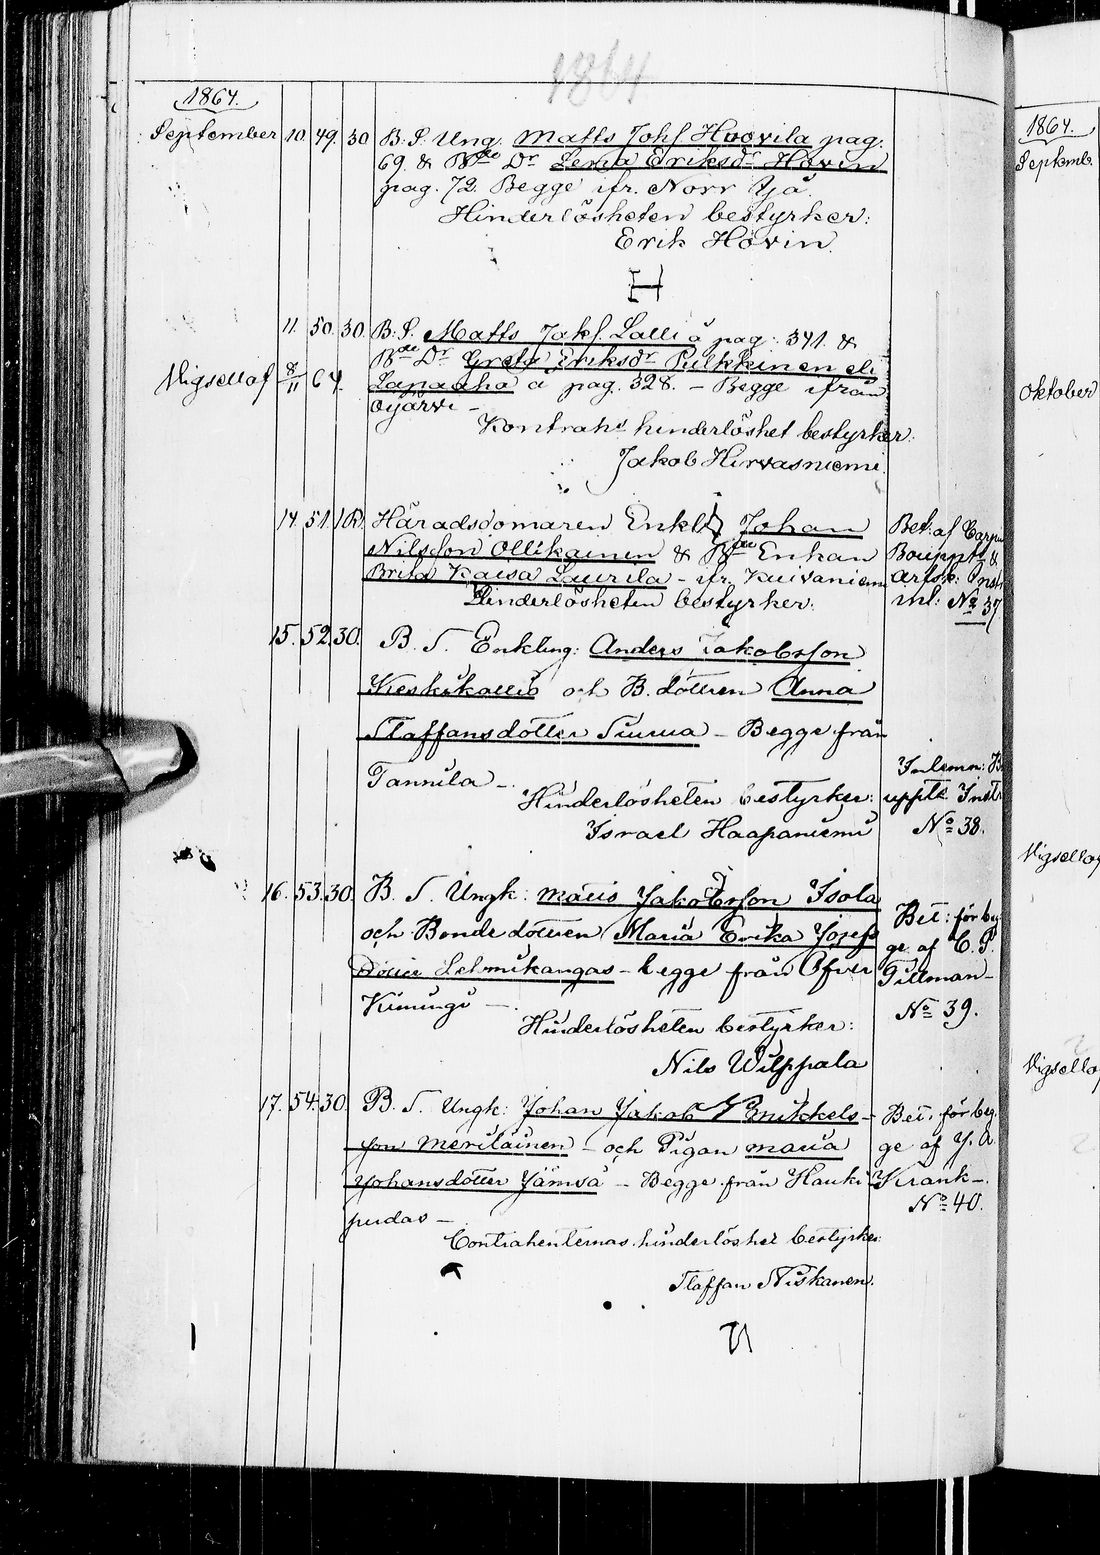 1864
1864.
September 10. 49. 30 B. S. Ung. Matts Johs Hoovila pag.
69 & Bde Dr Lena Eriksdr Hövin
pag. 72. Begge ifr. Norr Ijå.
Hinderlösheten bestyrker:
Erik Hövin
11. 50. 30. B. S. Matts Jaks. Lalli å pag: 341. &
Bde Dr Greta Eriksdr Pulkkinen eli
Vigsellaf 8/11 64. Lapaaho å pag. 328. – Begge ifrån
Oijärvi –
Kontrahs hinderlöshet bestyrker:
Jakob Hirvasniemi.
14. 51. Häradsdomaren Enkl. Johan
Nilsson Ollikainen & Bde Enkan
Brita Kaisa Laurila – ifr. Kuivaniemi
Hinderlösheten bestyrker:
Bet: af
Bouppt: &
No 37
15. 52. 30. B. S. Enkling: Anders Jakobsson
Keskikallio och B. dottren Anna
Staffansdotter Siurua – Begge från
Tannila –
Hinderlösheten bestyrker:
Israel Haapaniemi
Inlemn:
uppt: Inst
No 38.
16. 53. 30. B. S. Ungk: Matts Jakobsson Isola
och Bonde dottren Maria Erika Josefs
Dotter Lehmikangas – begge från Öfver
Kiimingi –
Hinderlösheten bestyrker:
Nils Wilppala
Bet: för beg
ge af C. P.
Tillman –
No 39.
17. 54. 30. B. S. Ungk: Johan Jakob Henrikkels-
son Meriläinen – och Pigan Maria
Johansdotter Jämsä – Begge från Hauki
pudas –
Contrahenternas hinderlöshet bestyrker:
Staffan Niskanen.
Bet: för beg
ge af J. A.
Krank –.
No 40.
1864.
Septemb.
Oktober
Vigsellaf
Vigsellaf